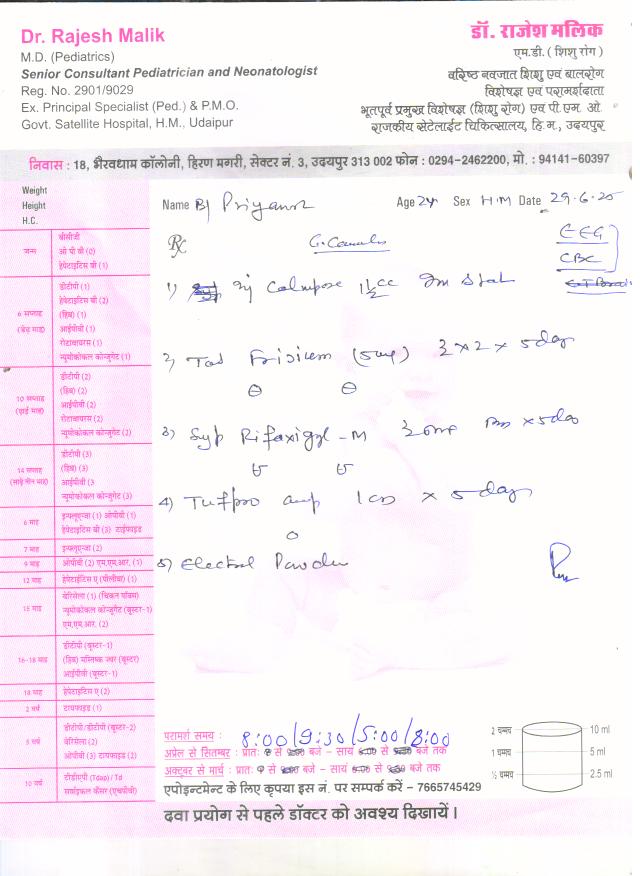 Dr. Rajesh Malik
M.D. (Pediatrics)
Senior Consultant Pediatrician and Neonatologist
Reg. No. 2901/9029
Ex. Principal Specialist (Ped.) & P.M.O.
Govt. Satellite Hospital, H.M., Udaipur
डॉ. राजेश मलिक
एम.डी. ( शिशु रोग )
वरिष्ठ नवजात शिशु एवं बालरोग
विशेषज्ञ एवं परामर्शदाता
भूतपूर्व प्रमुख विशेषज्ञ (शिशु रोग) एवं पी.एम. ओ.
राजकीय सेटेलाईट चिकित्सालय, हि.म., उदयपुर
निवास : 18, भैरवधाम कॉलोनी, हिरण मगरी, सेक्टर नं. 3, उदयपुर 313 002 फोन : 0294-2462200, मो. : 94141-60397
Weight
Height
H.C.
Name B/ Age 2y Sex H.M Date 29.6.25
Rx
EEG
CBC
1) inj Calmpose 1½cc Im Stat
2) Tab (5mg) 2 x 2 x 5 day
3) Syp Rifaxigyl-M x 5 day
4) x 5 day
5) Electral Powder
जन्म
बीसीजी
ओ पी वी (0)
हेपेटाइटिस बी (1)
6 सप्ताह
(डेढ़ माह)
डीटीपी (1)
हेपेटाइटिस बी (2)
(हिब) (1)
आईपीवी (1)
रोटावायरस (1)
न्यूमोकोकल कोन्जुगेट (1)
10 सप्ताह
(ढ़ाई माह)
डीटीपी (2)
(हिब) (2)
आईपीवी (2)
रोटावायरस (2)
न्यूमोकोकल कोन्जुगेट (2)
14 सप्ताह
(साढ़े तीन माह)
डीटीपी (3)
(हिब) (3)
आईपीवी (3)
न्यूमोकोकल कोन्जुगेट (3)
6 माह
इन्फ्लूएन्जा (1) ओपीवी (1)
हेपेटाइटिस बी (3) टाईफाइड
7 माह
इन्फ्लूएन्जा (2)
9 माह
ओपीवी (2) एम.एम.आर. (1)
12 माह
हेपेटाईटिस ए (पीलीया) (1)
15 माह
वेरिसेला (1) (चिकन पॉक्स)
न्यूमोकोकल कोन्जुगेट (बूस्टर-1)
एम.एम.आर. (2)
16-18 माह
डीटीपी (बूस्टर-1)
(हिब) मस्तिष्क ज्वर (बूस्टर)
आईपीवी (बूस्टर-1)
18 माह
हेपेटाइटिस ए (2)
2 वर्ष
टायफाइड (1)
5 वर्ष
डीटीपी/डीटीपी (बूस्टर-2)
वेरिसेला (2)
ओपीवी (3) टायफाइड (2)
10 वर्ष
टीडीएपी (Tdap) / Td
सर्वाइकल कैंसर (एचपीवी)
परामर्श समय : 8:00/9:30/5:00/8:00
अप्रेल से सितम्बर : प्रातः से बजे - सायं से बजे तक
अक्टूबर से मार्च : प्रातः से बजे - सायं से बजे तक
एपोइन्टमेन्ट के लिए कृपया इस नं. पर सम्पर्क करें - 7665745429
दवा प्रयोग से पहले डॉक्टर को अवश्य दिखायें ।
2 चम्मच 10 ml
1 चम्मच 5 ml
½ चम्मच 2.5 ml